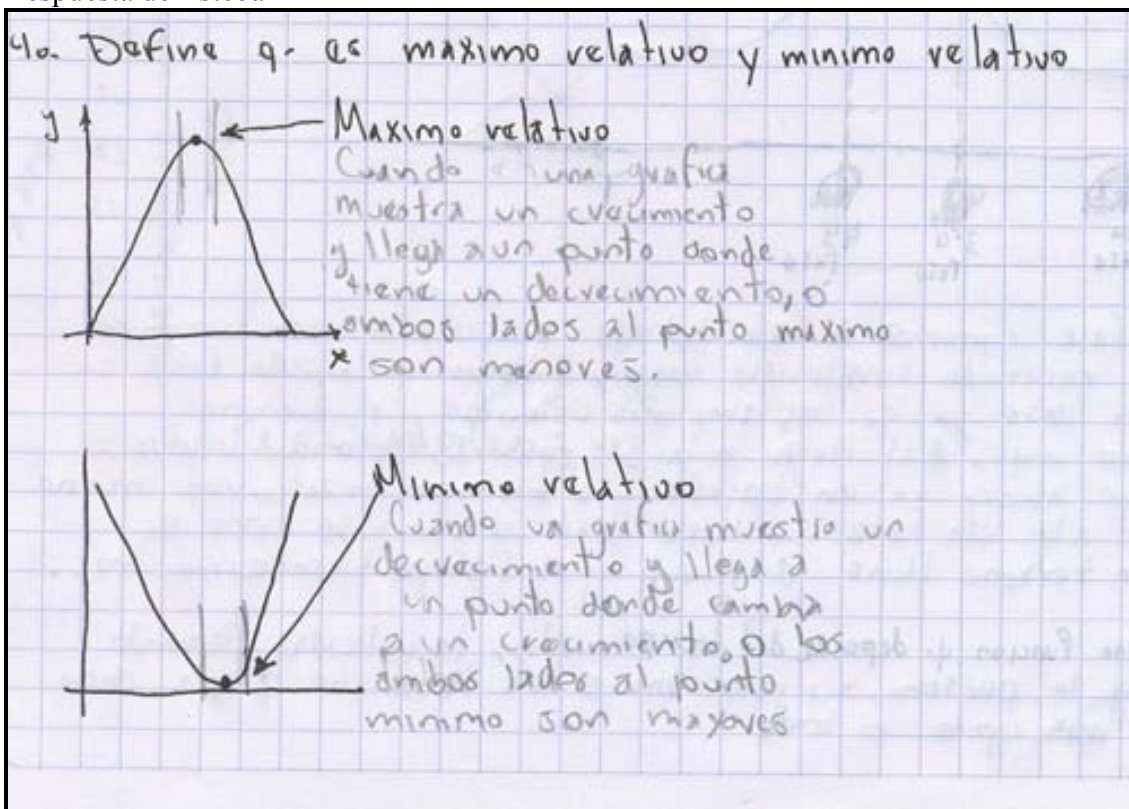 4o. Define q. es maximo relativo y minimo relativo
y
Maximo relativo
Cuando una grafica
muestra un crecimiento
y llega a un punto donde
tiene un decrecimiento, o
ambos lados al punto maximo
x son menores.
Minimo relativo
Cuando un grafica muestra un
decrecimiento y llega a
un punto donde cambia
a un crecimiento, o los
ambos lados al punto
minimo son mayores